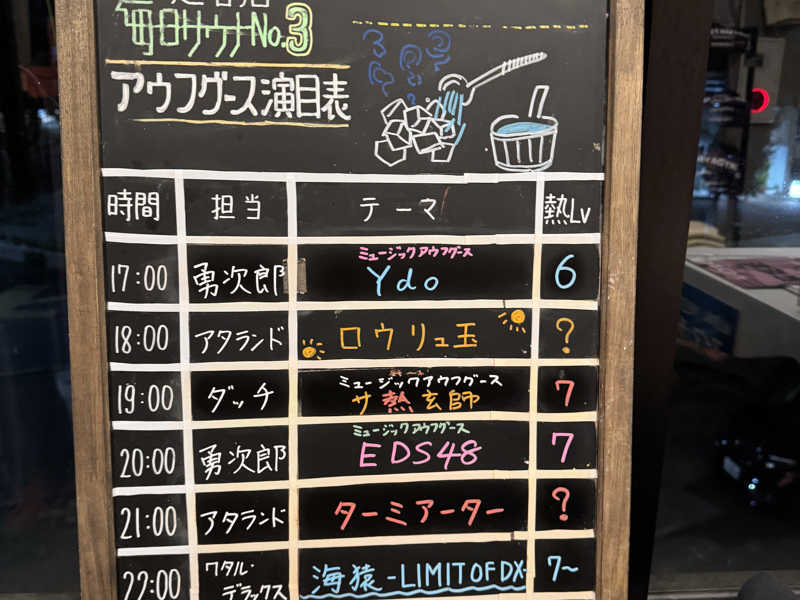 毎日サウナNo.3
アウフグース演目表
時間 担当 テーマ 熱Lv
ミュージックアウフグース
17:00 勇次郎 Ydo 6
18:00 アタランド ロウリュ玉 ?
ミュージックアウフグース
19:00 ダッチ サ熱玄師 7
ミュージックアウフグース
20:00 勇次郎 EDS48 7
21:00 アタランド ターミアーター ?
22:00 ワタル・デラックス 海猿-LIMIT OF DX- 7~